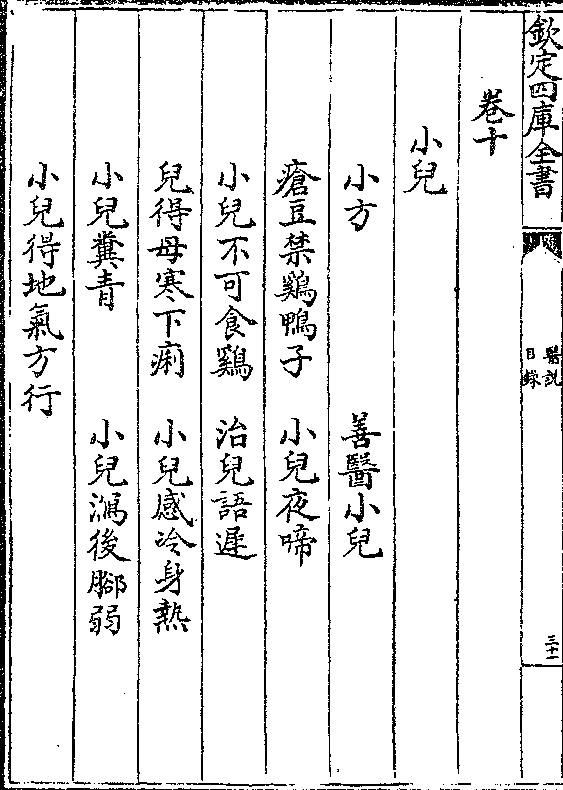 欽定四庫全書
醫說
目錄
三十一
卷十
小兒
小方　善醫小兒
瘡豆禁鷄鴨子　小兒夜啼
小兒不可食鷄　治兒語遲
兒得母寒下痢　小兒感冷身熱
小兒糞青　小兒瀉後腳弱
小兒得地氣方行